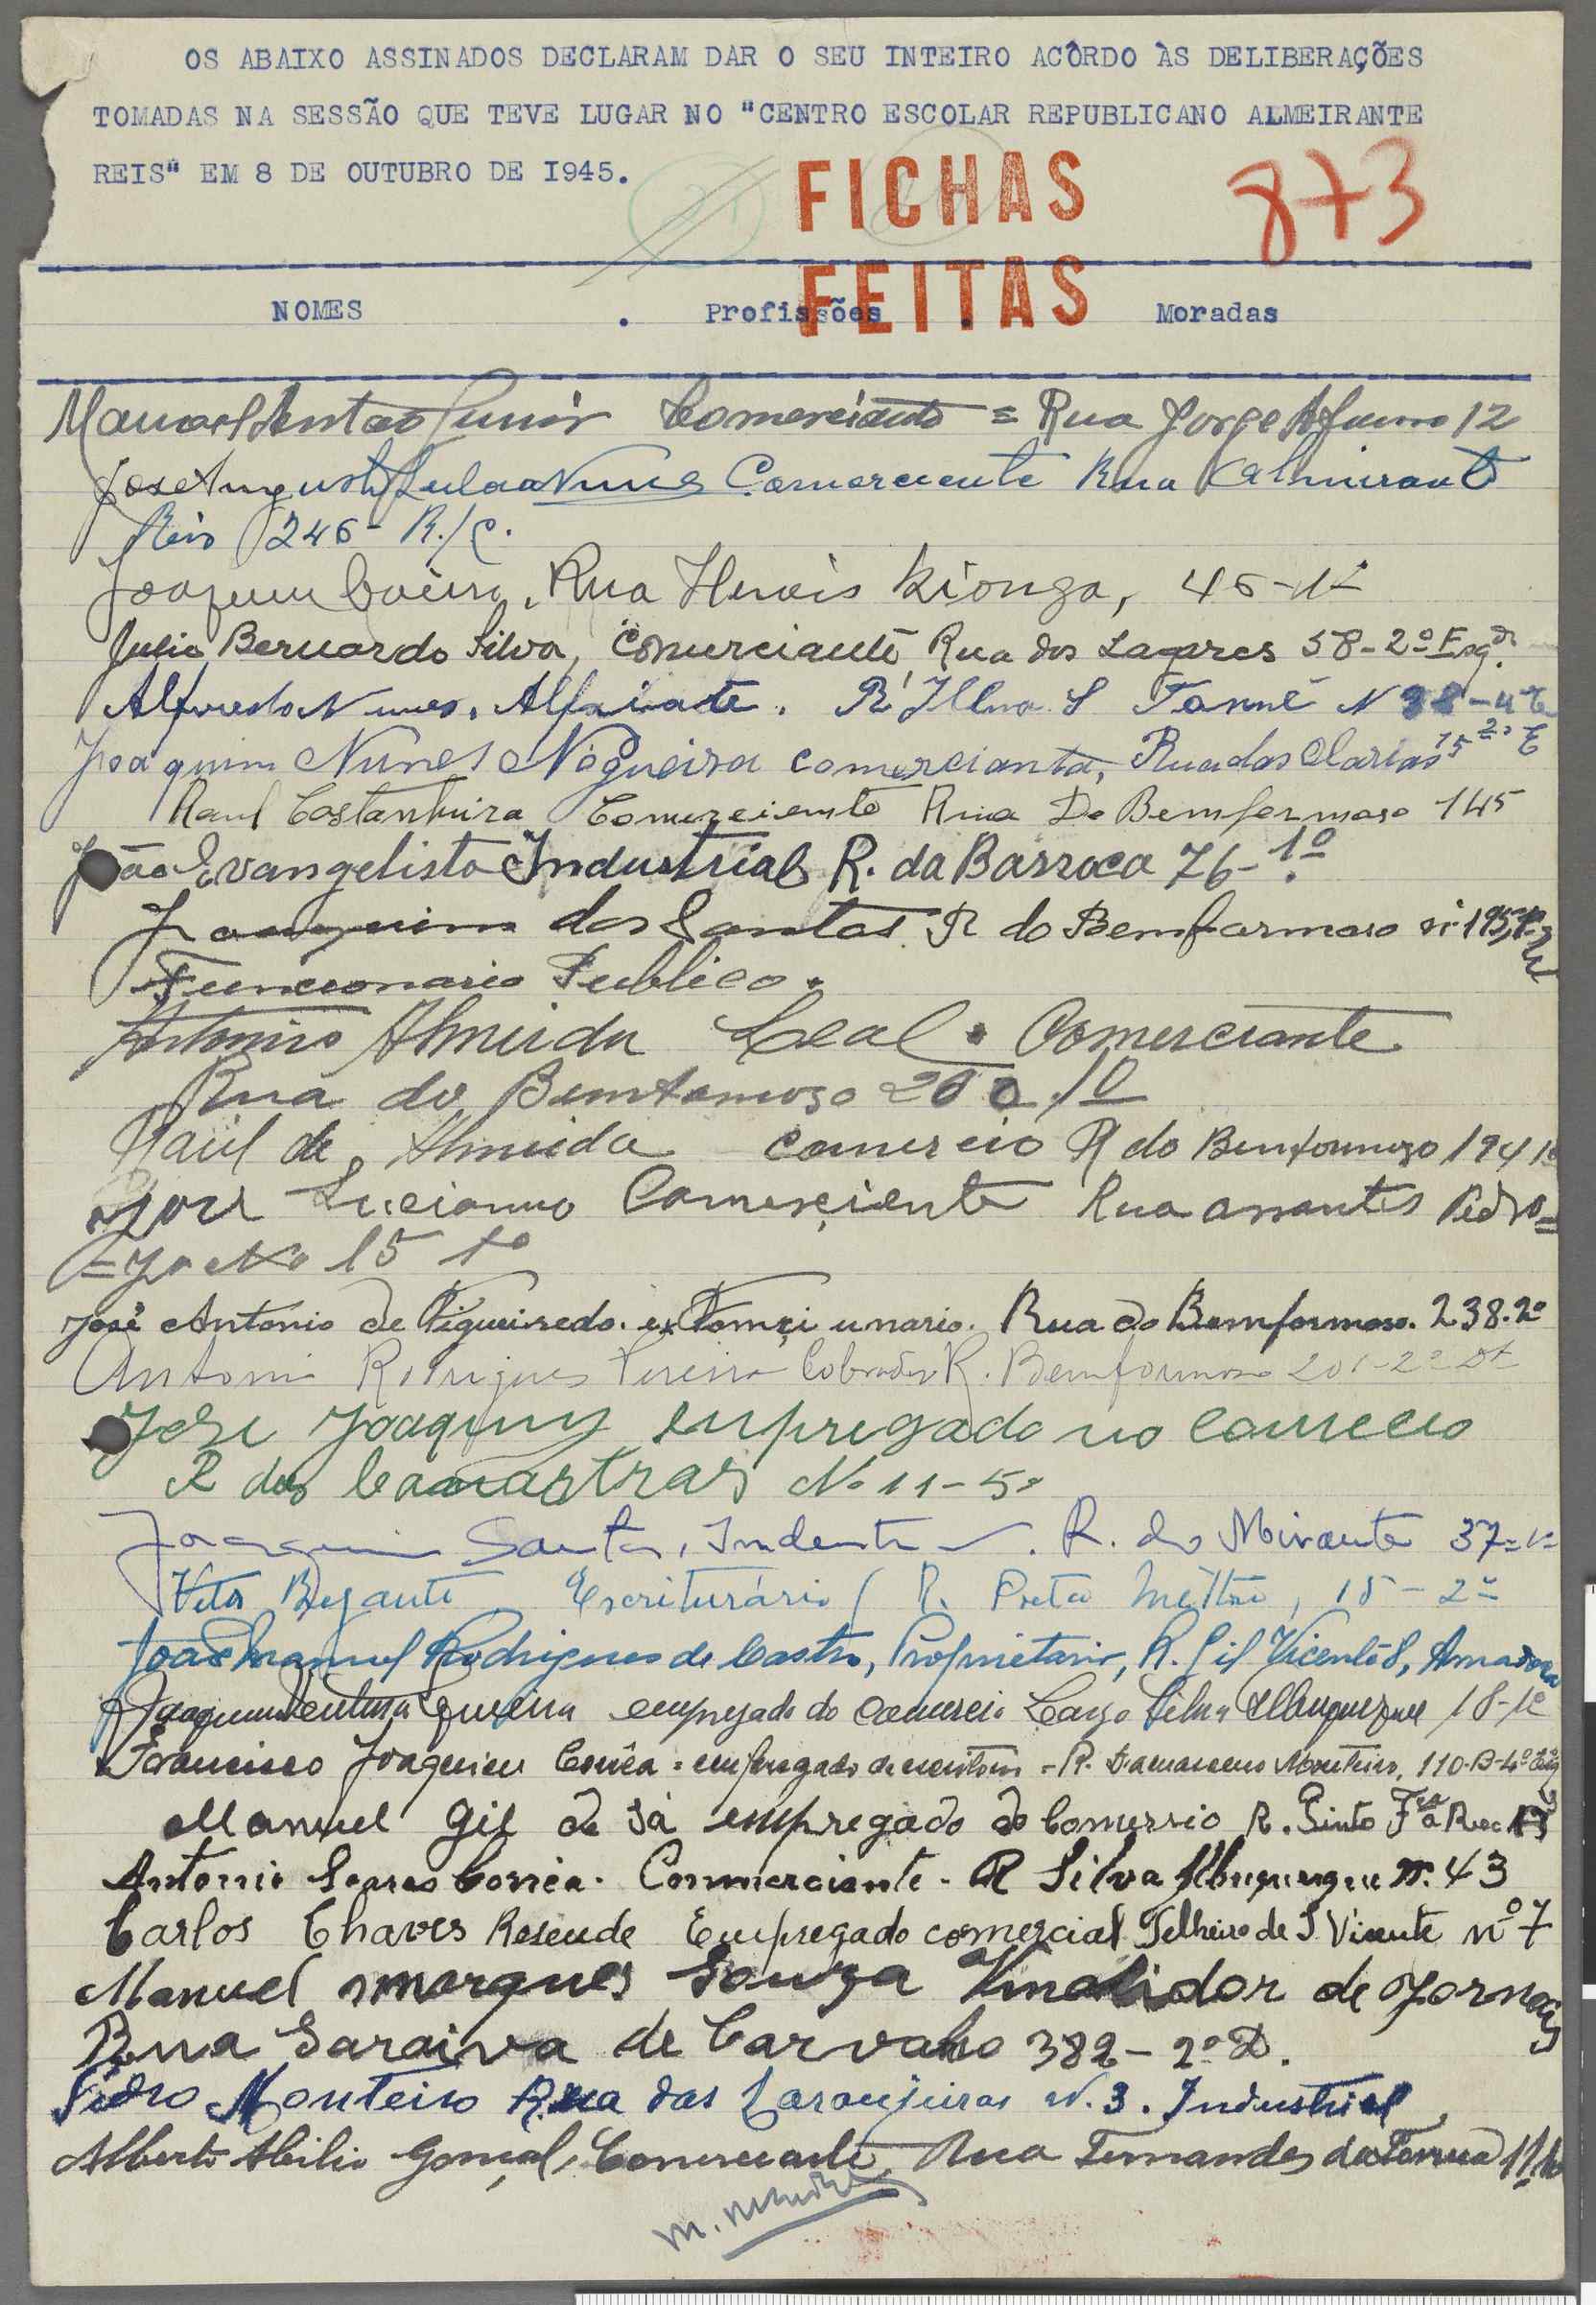 OS ABAIXO ASSINADOS DECLARAM DAR O SEU INTEIRO ACÔRDO ÀS DELIBERAÇÕES
TOMADAS NA SESSÃO QUE TEVE LUGAR NO "CENTRO ESCOLAR REPUBLICANO ALMEIRANTE
REIS" EM 8 DE OUTUBRO DE I945.
FICHAS
873
FEITAS
NOMES . Profissões . Moradas
Manoel Antão Junior Comerciante = Rua Jorge Afonso 12
José Augusto Nunes Comerciante Rua Almirante
Reis 246 - R./C.
Joaquim Rua Herois Kionga, 46-1º
Julio Bernardo Silva, Comerciante Rua dos Lagares 58-2º Esqdº
Alfredo Nunes, Alfaiate. R Ilha S Tomé Nº 38-4º E
Joaquim Nunes Nogueira comerciante, Rua das Olarias 15 2º E
Raul Castanheira Comerciante Rua Do Bemformoso 145
João Evangelista Industrial R. da Barroca 76-1º
Joaquim dos Santos R do Bemformoso nº 195
Funcionario Publico.
Antonio Almeida Leal. Comerciante
Rua do Bemformoso 260 1º
Raúl de Almeida comercio R do Bemformozo 194 1º
José Lucianno Comerçiente Rua Pedro =
15 1º
José Antonio de Figueiredo. ex Rua do Bemformoso. 238.2º
Antonio Rodrigues Pereira Cobrador R. Bemformoso 201-2º Dt
José Joaquim empregado no comercio
R das Canastras Nº 11-5º
Joaquim Santos, Industrial. R. do Mirante 37=1º
Vitor Escriturário / R. Preta 15-2º
João Manuel Rodrigues de Castro, Proprietario, R. Gil Vicente 8, Amadora
Joaquim Ventura empregado do comercio Largo Silva Albuquerque 18-1º
Francisco Joaquim Corrêa = empregado de escritorio = R. Damasceno Monteiro, 110-B-4º Esq
Manuel Gil de Sá empregado do Comercio R. Pinto
Antonio Soares Corrêa. Commerciante. R Silva Albuquerque nº. 43
Carlos Chaves Resende Empregado comercial Telheiro de S. Vicente nº 7
Manuel Marques Souza de Jornaes
Rua Saraiva de Carvalho 382-2º D.
Pedro Monteiro Rua das Laranjeiras N. 3. Industrial
Alberto Abilio Comerciante, Rua Fernandes da Fonseca 11